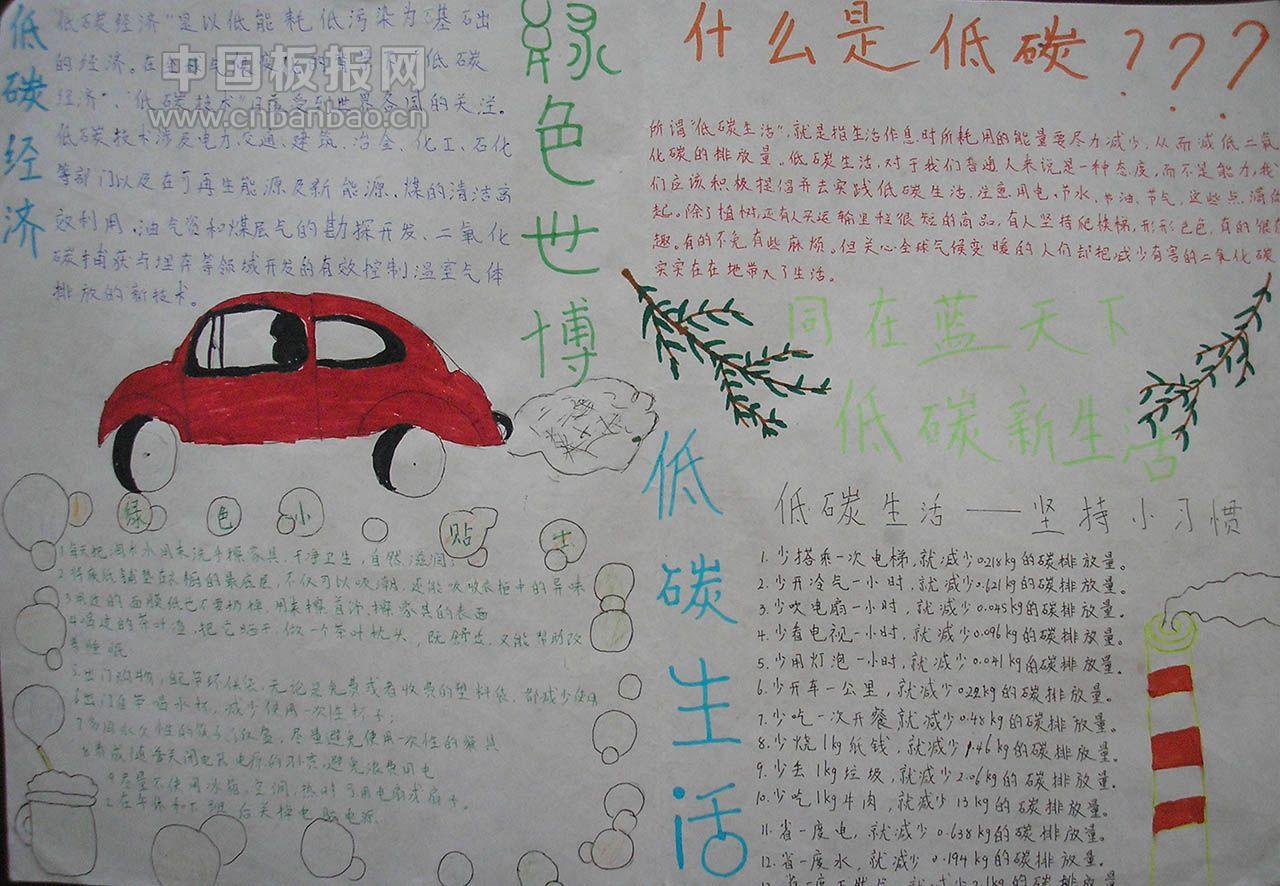 低碳经济
低碳经济"是以低能耗低污染为基础
的经济。在全球气候变化的背景下，"低碳
经济"、"低碳技术"日益受到世界各国的关注。
低碳技术涉及电力、交通、建筑、冶金、化工、石化
等部门以及在可再生能源及新能源、煤的清洁高
效利用、油气资和煤层气的勘探开发、二氧化
碳捕获与埋存等领域开发的有效控制温室气体
排放的新技术。
中国板报网
www.cnbanbao.cn
绿色世博
什么是低碳???
所谓"低碳生活",就是指生活作息时所耗用的能量要尽力减少,从而减低二氧
化碳的排放量。低碳生活,对于我们普通人来说是一种态度,而不是能力,我
们应该积极提倡并去实践低碳生活,注意用电、节水、节油、节气,这些点滴做
起。除了植树,还有人买运输里程很短的商品,有人坚持爬楼梯,形形色色,有的很有
趣。有的不免有些麻烦。但关心全球气候变暖的人们却把减少有害的二氧化碳
实实在在地带入了生活。
同在蓝天下
低碳新生活
绿色小贴士
1.每天把淘米水用来洗手擦家具,干净卫生,自然滋润;
2.将废纸铺垫在衣柜的最底层,不仅可以吸潮,还能吸收衣柜中的异味
3.用过的面膜纸也不要扔掉,用来擦首饰、擦家具的表面
4.喝过的茶叶渣,把它晒干,做一个茶叶枕头,既舒适,又能帮助改
善睡眠
5.出门购物,自带环保袋,无论是免费或者收费的塑料袋,都减少使用
6.出门自带喝水杯,减少使用一次性杯子;
7.多用永久性的筷子、饭盒,尽量避免使用一次性的餐具
8.养成随手关闭电器电源的习惯,避免浪费用电
9.尽量不使用冰箱、空调,热时可用电扇或扇子。
在午休和下班后关掉电脑电源
低碳生活
低碳生活——坚持小习惯
1.少搭乘一次电梯,就减少0.218kg的碳排放量。
2.少开冷气一小时,就减少0.621kg的碳排放量。
3.少吹电扇一小时,就减少0.045kg的碳排放量。
4.少看电视一小时,就减少0.096kg的碳排放量。
5.少用灯泡一小时,就减少0.041kg的碳排放量。
6.少开车一公里,就减少0.22kg的碳排放量。
7.少吃一次开餐,就减少0.48kg的碳排放量。
8.少烧1kg纸钱,就减少1.46kg的碳排放量。
9.少丢1kg垃圾,就减少2.06kg的碳排放量。
10.少吃1kg牛肉,就减少13kg的碳排放量。
11.省一度电,就减少0.638kg的碳排放量。
12.省一度水,就减少0.194kg的碳排放量。
省一度天然气,就减少2.1kg的碳排放量。